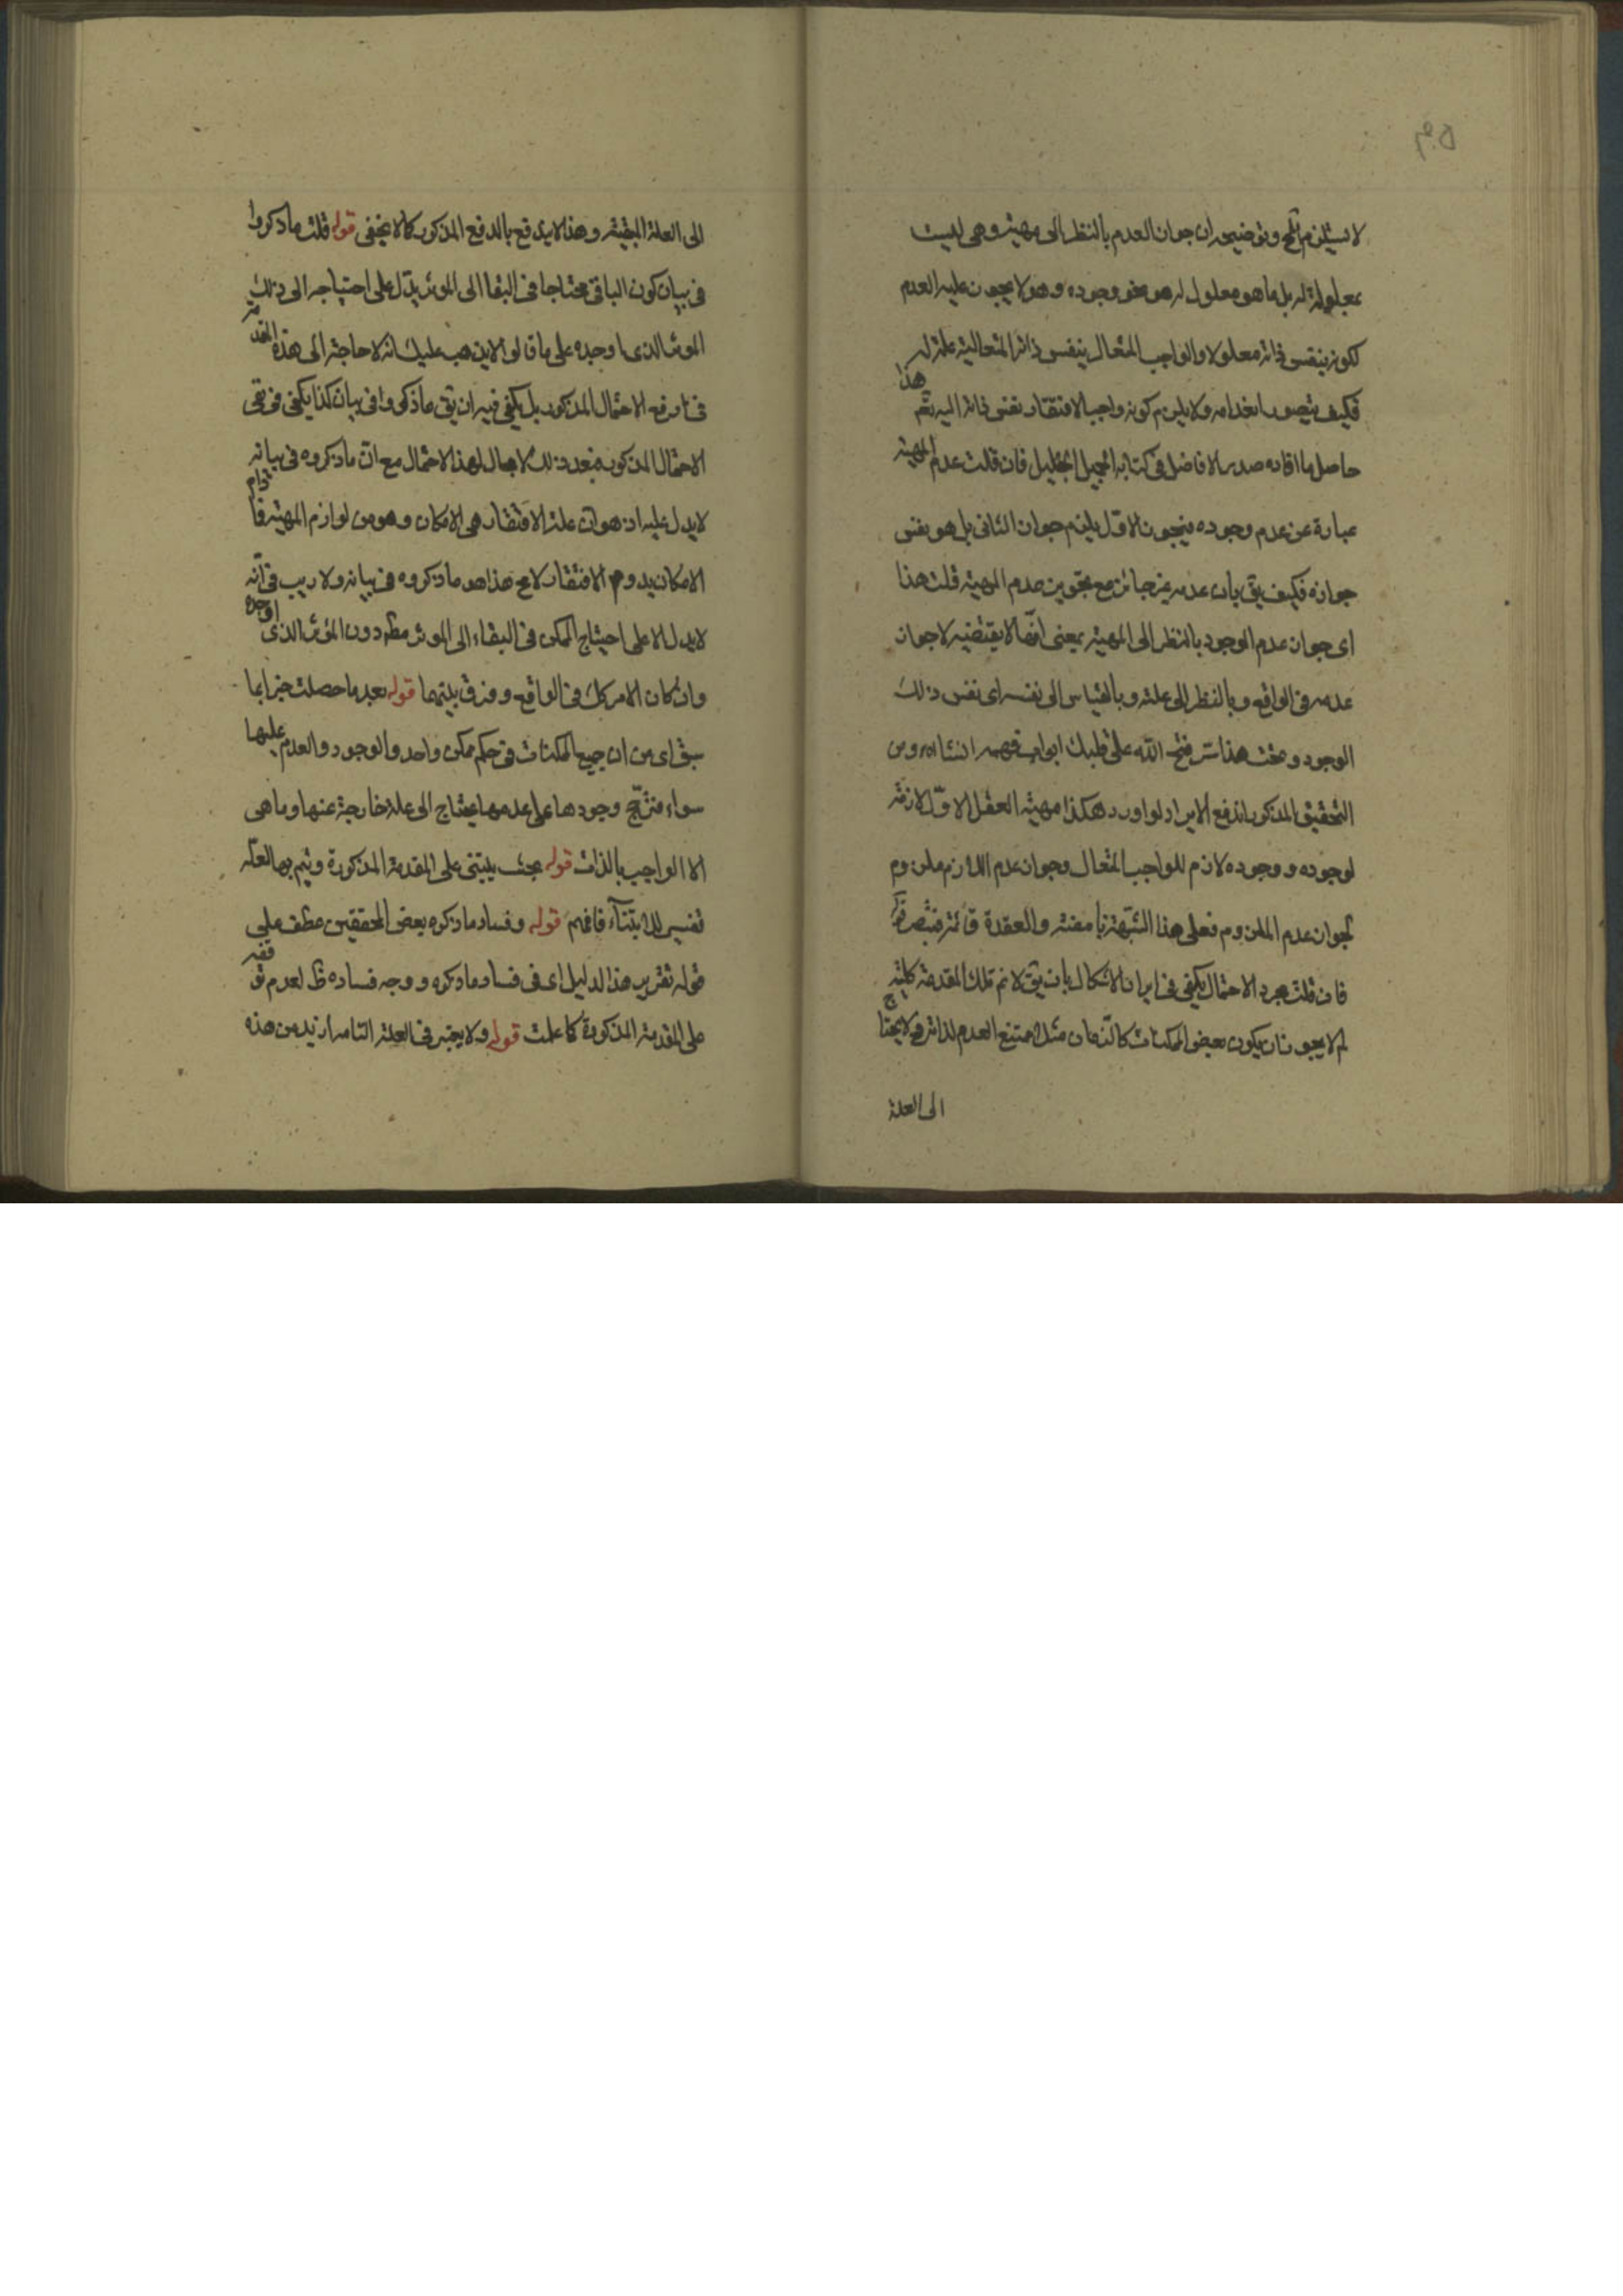 لا يستلزم المح وتوضيحه ان جواز العدم بالنظر الى مهيته وهى ليست
بمعلولة له بل ما هو معلول له هو نحو وجوده وهو لا يجوز عليه العدم
لكونه بنفس ذاته معلولا والواجب المتعال بنفس ذاته المتعالية علة له
فكيف يتصور انعدامه ولا يلزم كونه واجبا لافتقار نفس ذاته اليه تم هذا
حاصل ما افاده صدر الافاضل فى كتابه الجميل الجليل فان قلت عدم المهية
عبارة عن عدم وجوده فبجواز الاول يلزم جواز الثانى بل هو نفس
جوازه فكيف يق بان عدمه غير جائز مع تجويز عدم المهية قلت هذا
اى جواز عدم الوجود بالنظر الى المهية بمعنى انها لا يقتضيه لا جواز
عدمه فى الواقع وبالنظر الى علته وبالقياس الى نفسه اى نفس ذلك
الوجود وتحت هذا سر فتح الله على قلبك ابواب فهمه انشاء الله ومن
التحقيق المذكور اندفع الايراد لو اورد هكذا مهية العقل الاول لازمة
لوجوده ووجوده لازم للواجب المتعال وجواز عدم اللازم ملزوم
لجواز عدم الملزوم فعلى هذا الشبهة نامضة والعقدة قائمة فتبصر
فان قلت مجرد الاحتمال يكفى فى ايراد الاشكال بان يق لا نم تلك المقدمة كلية
لم لا يجوز ان يكون بعض الممكنات كالزمان مثلا ممتنع العدم لذاته فلا يحتاج
الى العلة
الى العلة المبقية وهذا لا يندفع بالدفع المذكور كما لا يخفى قوله قلت ما ذكروا
فى بيان كون الباقى محتاجا فى البقا الى المؤثر يدل على احتياجه الى ذلك
المؤثر الذى اوجده على ما قالوا لا يذهب عليك انه لا حاجة الى هذه المقدمة
فى دفع الاحتمال المذكور بل يكفى فيه ان يق ما ذكروا فى بيان كذا يكفى فى نفى
الاحتمال المذكور فبعد ذلك لا مجال لهذا الاحتمال مع ان ما ذكروه فى بيانه
لا يدل عليه اذ هو ان علة الافتقار هى الامكان وهو من لوازم المهية فما دام
الامكان يدوم الافتقار لا مح هذا هو ما ذكروه فى بيانه ولا ريب فى انه
لا يدل الا على احتياج الممكن فى البقاء الى المؤثر مطلقا دون المؤثر الذى اوجده
وان كان الامر كك فى الواقع وفرق بينهما قوله بعد ما حصلت خبرا بما
سبق اى من ان جميع الممكنات فى حكم ممكن واحد والوجود والعدم عليها
سواء فترجح وجودها على عدمها يحتاج الى علة خارجة عنها وما هى
الا الواجب بالذات قوله بحيث يبتنى على المقدمة المذكورة ويتم بها لعله
تفسير للابتناء فافهم قوله وفساد ما ذكره بعض المحققين عطف على
قوله تقرير هذا الدليل اى فى فساد ما ذكره ووجه فساده ظ لعدم توقفه
على المقدمة المذكورة كما علمت قوله ولا يعتبر فى العلة التامة ازيد من هذه